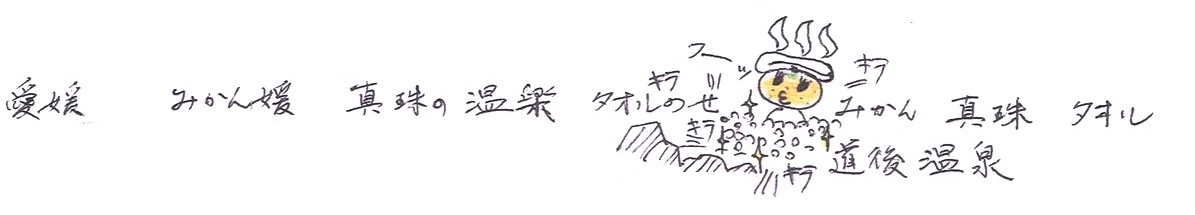 愛媛 みかん媛 真珠の温楽 タオルのせ みかん 真珠 タオル
道後温泉
フーッ
キラ
キラ
キラ
キラ